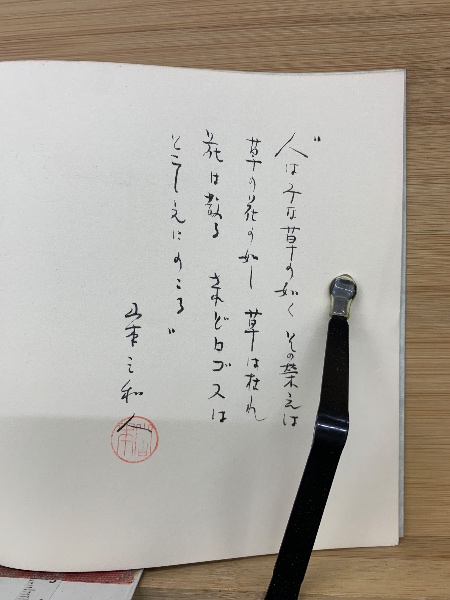 〝人はみな草の如く その栄えは
草の花の如し 草は枯れ
花は散る されどロゴスは
とこしえにのこる〟
山本三和人